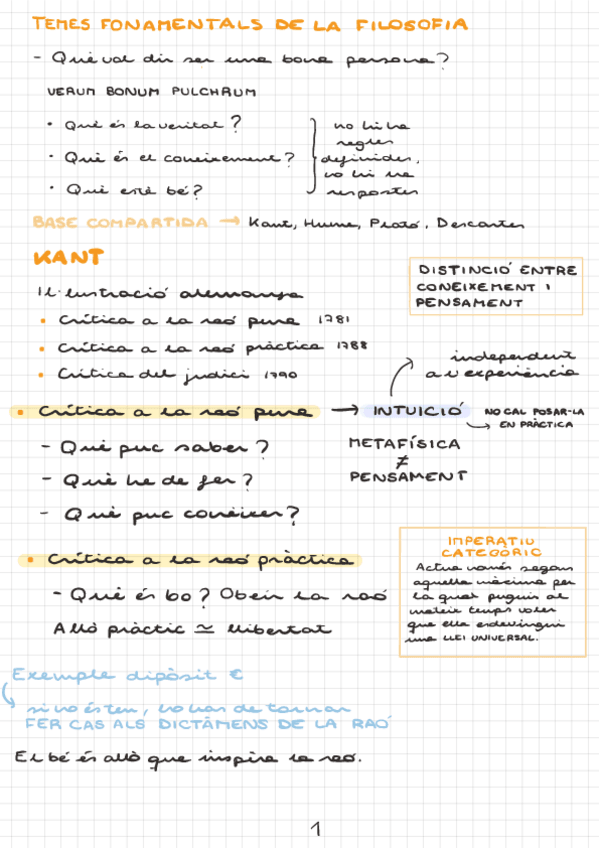 TEMES FONAMENTALS DE LA FILOSOFIA
- Què vol dir ser una bona persona?
VERUM BONUM PULCHRUM
• Què és la veritat?
• Què és el coneixement?
• Què està bé?
no hi ha
regles
definides,
no hi ha
respostes
BASE COMPARTIDA → Kant, Hume, Plató, Descartes
KANT
Il·lustració alemanya
• Crítica a la raó pura 1781
• Crítica a la raó pràctica 1788
• Crítica del judici 1790
DISTINCIÓ ENTRE
CONEIXEMENT I
PENSAMENT
independent
a l'experiència
• Crítica a la raó pura → INTUICIÓ
NO CAL POSAR-LA
→ EN PRÀCTICA
- Què puc saber?
- Què he de fer?
- Què puc conèixer?
METAFÍSICA
≠
PENSAMENT
• Crítica a la raó pràctica
- Què és bo? Obeir la raó
Allò pràctic ≃ llibertat
IMPERATIU
CATEGÒRIC
Actua només segons
aquella màxima per
la qual puguis al
mateix temps voler
que ella esdevingui
una LLEI UNIVERSAL.
Exemple dipòsit €
si no és teu, ho has de tornar
FER CAS ALS DICTÀMENS DE LA RAÓ
El bé és allò que inspira la raó.
1